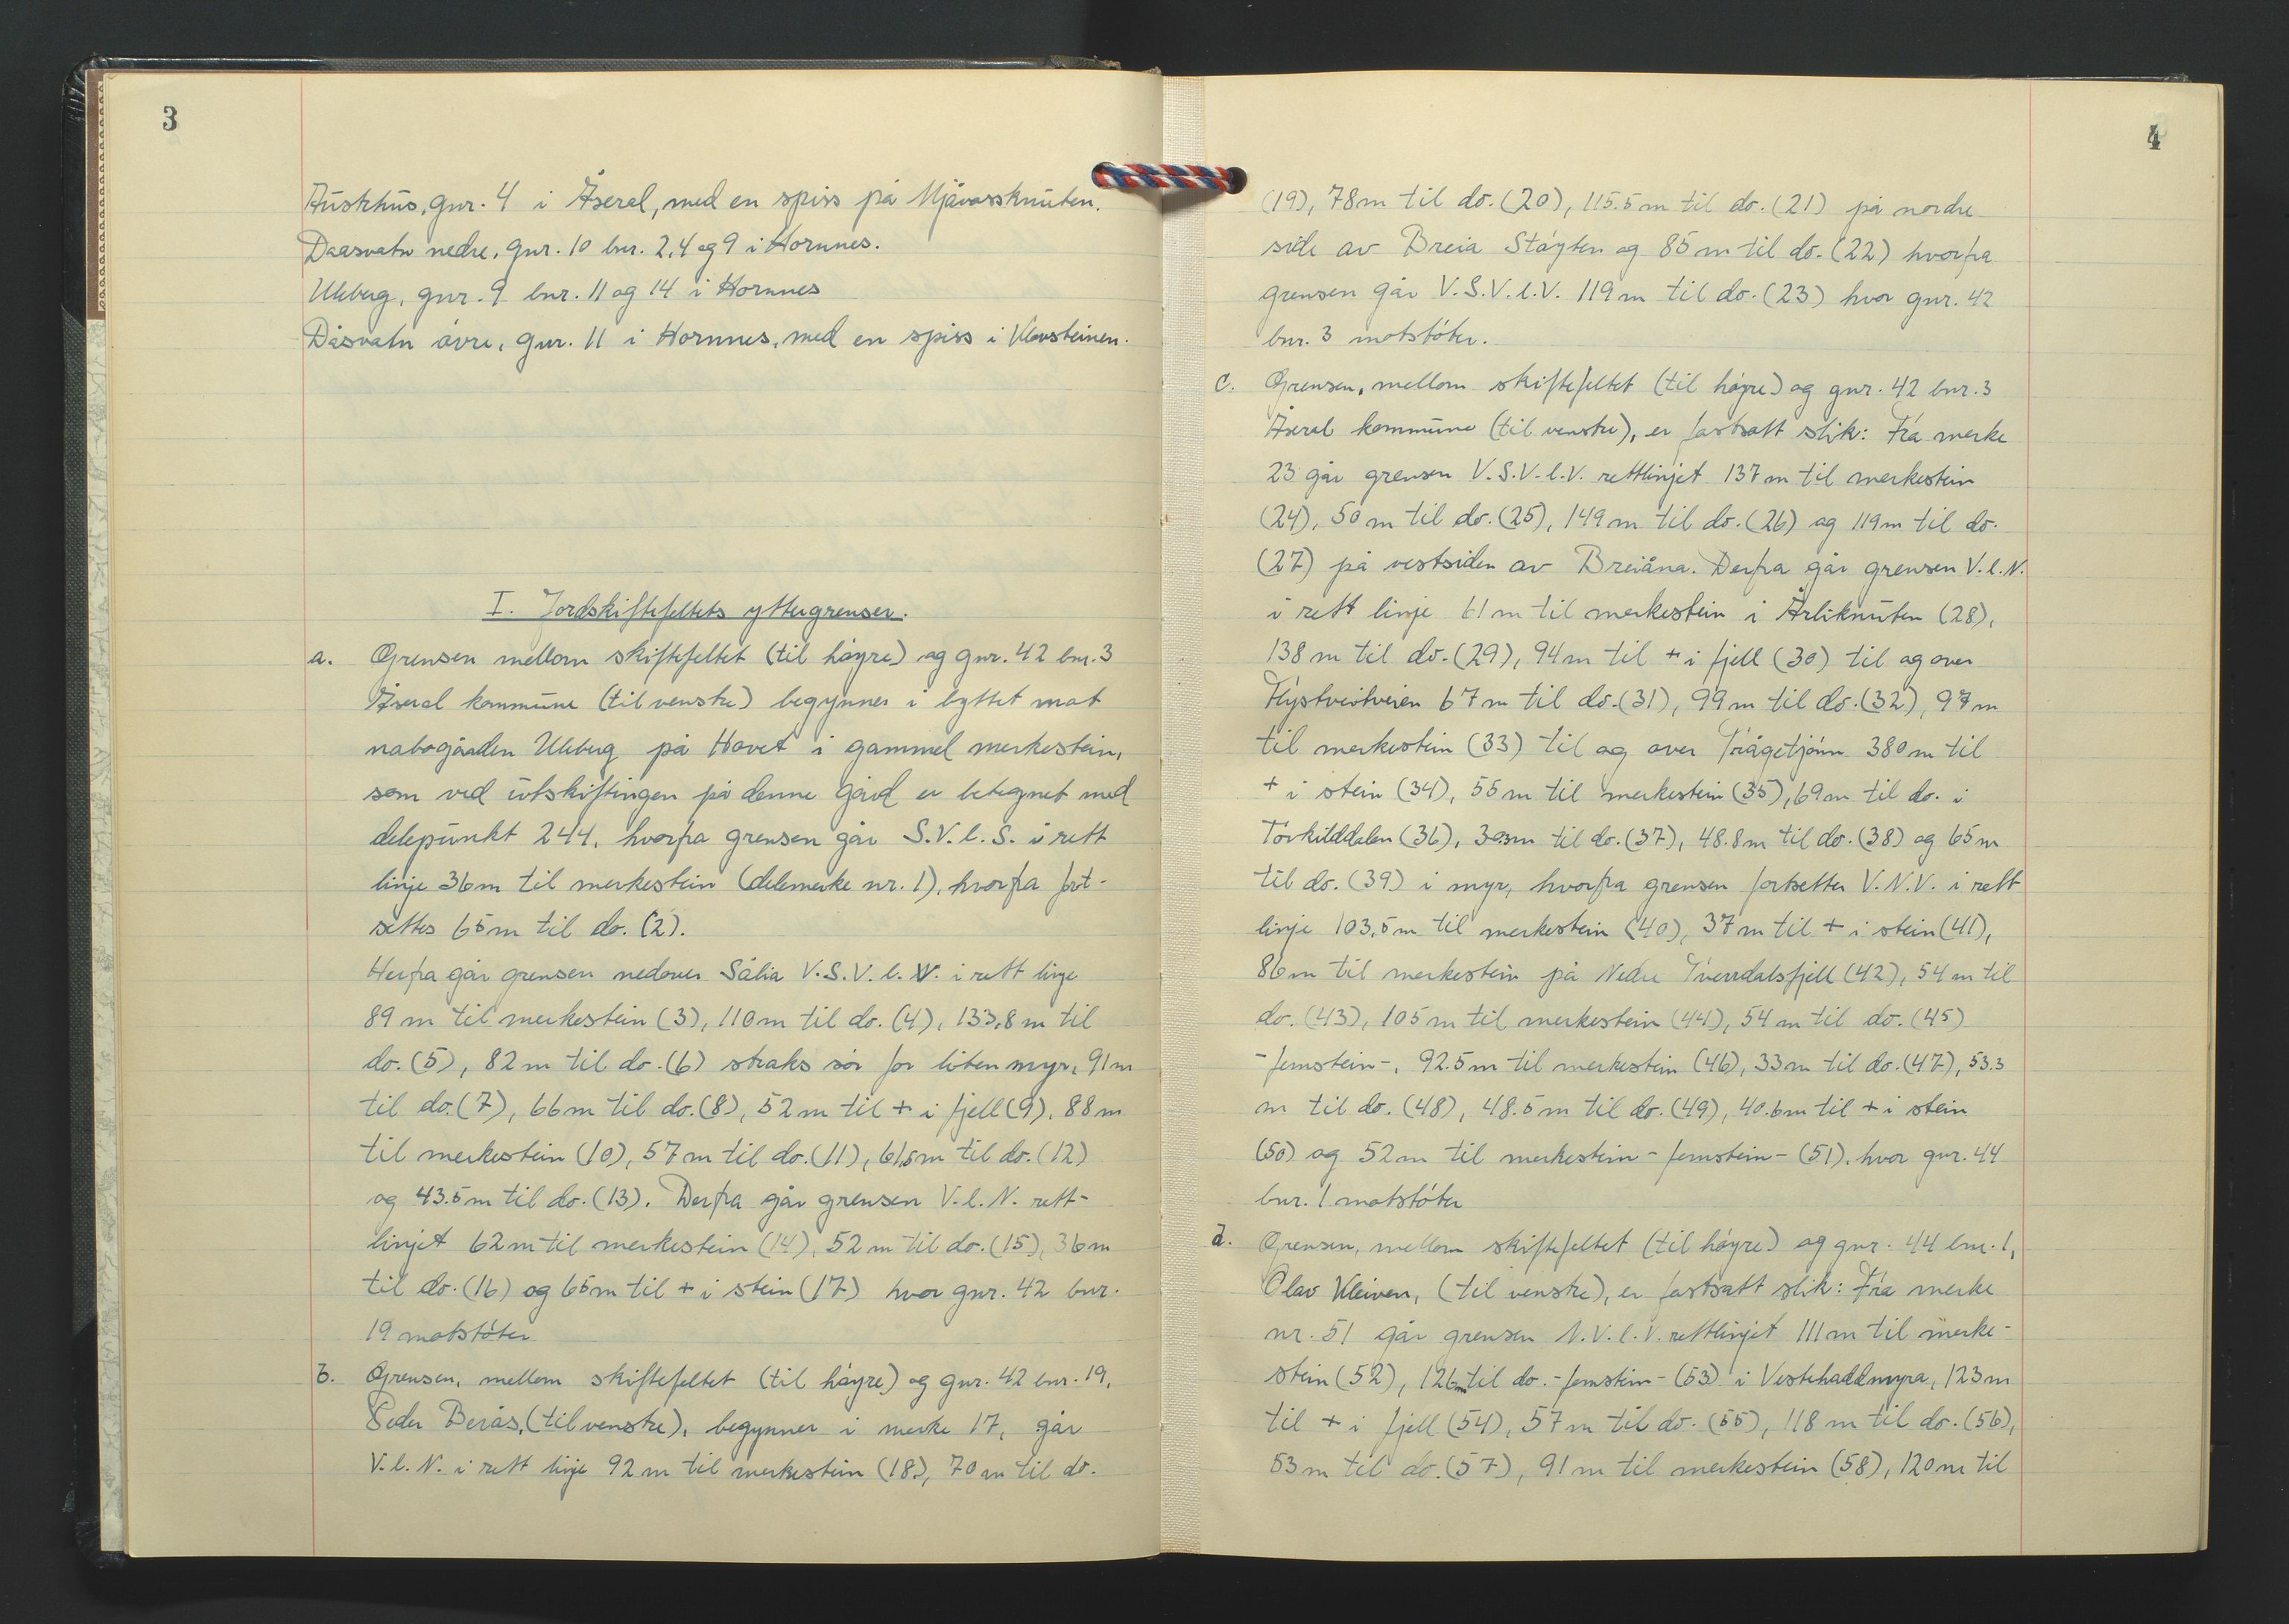 3
Austrhus, gnr. 4 i Åseral, med en spiss på Mjåvassknuten.
Daasvatn nedre, gnr. 10 bnr. 2, 4 og 9 i Hornnes.
Uleberg, gnr. 9 bnr. 11 og 14 i Hornnes
Dåsvatn øvre, gnr. 11 i Hornnes, med en spiss i Klovsteinen.
I. Jordskiftefeltets yttergrenser.
a. Grensen mellom skiftefeltet (til høyre) og gnr. 42 bnr. 3
Åseral kommune (til venstre) begynner i byttet mot
nabogården Uleberg på Hovet i gammel merkestein,
som ved utskiftingen på denne gård er betegnet med
delepunkt 244, hvorfra grensen går S.V.l.S. i rett
linje 36m til merkestein (delemerke nr. 1), hvorfra fort-
settes 65m til do. (2).
Herfra går grensen nedover Sålia V.S.V.l.V. i rett linje
89 m til merkestein (3), 110m til do. (4), 133,8 m til
do. (5), 82 m til do. (6) straks sør for liten myr, 91m
til do. (7), 66m til do. (8), 52m til + i fjell (9), 88m
til merkestein (10), 57m til do. (11), 61,5m til do. (12)
og 43.5m til do. (13). Derfra går grensen V.l.N. rett-
linjet 62m til merkestein (14), 52m til do. (15), 36m
til do. (16) og 65m til + i stein (17) hvor gnr. 42 bnr.
19 motstøter
b. Grensen, mellom skiftefeltet (til høyre) og gnr. 42 bnr. 19,
Peder Berås, (til venstre), begynner i merke 17, går
V.l.N. i rett linje 92m til merkestein (18), 70m til do.
4
(19), 78m til do. (20), 115.5m til do. (21) på nordre
side av Breia Støylen og 85m til do. (22) hvorfra
grensen går V.S.V.l.V. 119m til do. (23) hvor gnr. 42
bnr. 3 motstøter.
c. Grensen, mellom skiftefeltet (til høyre) og gnr. 42 bnr. 3
Åseral kommune (til venstre), er fastsatt slik: Fra merke
23 går grensen V.S.V.l.V. rettlinjet 137m til merkestein
(24), 50m til do. (25), 149m til do. (26) og 119m til do.
(27) på vestsiden av Breiåna. Derfra går grensen V.l.N.
i rett linje 61m til merkestein i Årliknuten (28),
138m til do. (29), 94m til + i fjell (30) til og over
67m til do. (31), 99m til do. (32), 97m
til merkestein (33) til og over Trågetjønn 380m til
+ i stein (34), 55m til merkestein (35), 69m til do. i
Torkilddalen (36), 30.3m til do. (37), 48.8m til do. (38) og 65m
til do. (39) i myr, hvorfra grensen fortsetter V.N.V. i rett
linje 103,5m til merkestein (40), 37m til + i stein (41),
86m til merkestein på Nedre Tverrdalsfjell (42), 54m til
do. (43), 105m til merkestein (44), 54m til do. (45)
- femstein -, 92.5m til merkestein (46), 33m til do. (47), 53.3
m til do. (48), 48.5m til do. (49), 40.6m til + i stein
(50) og 52m til merkestein - femstein - (51), hvor gnr. 44
bnr. 1 motstøter
d. Grensen, mellom skiftefeltet (til høyre) og gnr. 44 bnr. 1,
Olav Kleiven, (til venstre), er fastsatt slik: Fra merke
nr. 51 går grensen N.V.l.V. rettlinjet 111m til merke-
stein (52), 126m til do. - femstein - (53) i Vestehaddmyra, 123m
til + i fjell (54), 57m til do. (55), 118m til do. (56),
53m til do. (57), 91m til merkestein (58), 120m til